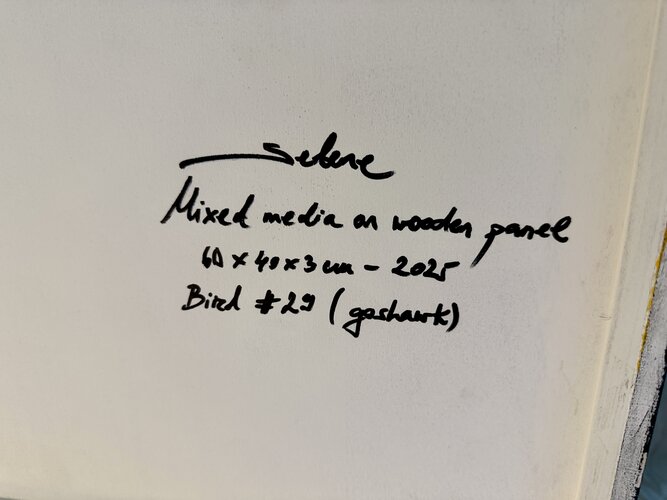 Selene
Mixed media on wooden panel
60 x 40 x 3 cm - 2025
Bird #29 (goshawk)